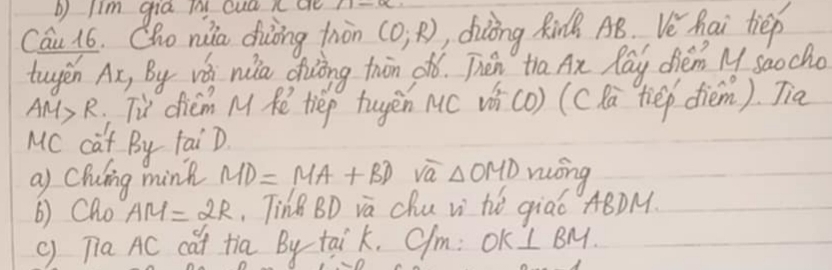 b) Tìm giá trị của x để A = 
Câu 16. Cho nửa đường tròn (O;R), đường kính AB. Vẽ hai tiếp
tuyến Ax, By với nửa đường tròn đó. Trên tia Ax lấy điểm M sao cho
AM > R. Từ điểm M kẻ tiếp tuyến MC với (O) (C là tiếp điểm). Tia
MC cắt By tại D.
a) Chứng minh MD = MA + BD và △OMD vuông
b) Cho AM = 2R. Tính BD và chu vi tứ giác ABDM.
c) Tia AC cắt tia By tại K. C/m: OK ⊥ BM.